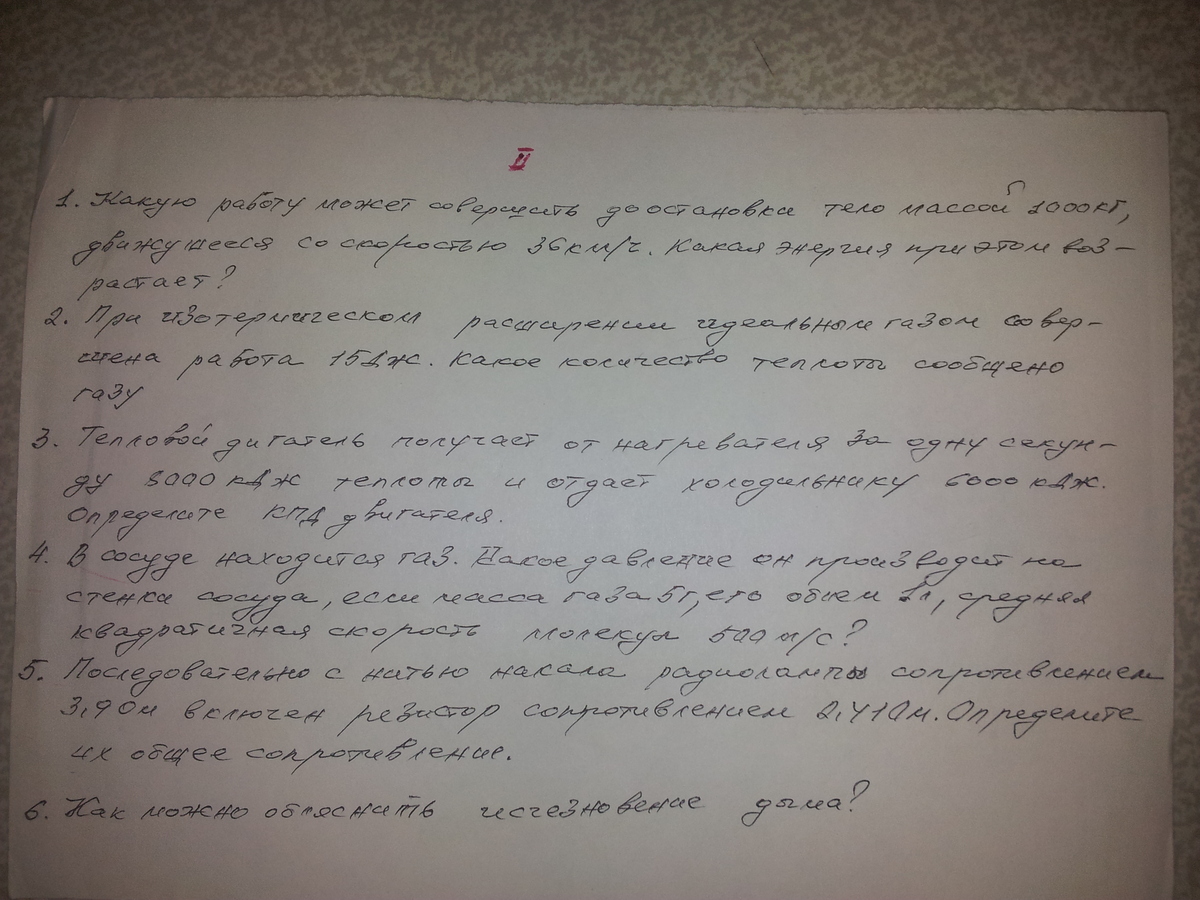 II
1. Какую работу может совершить до остановки тело массой 1000кг,
движущееся со скоростью 36км/ч. Какая энергия при этом воз-
растает?
2. При изотермическом расширении идеальным газом совер-
шена работа 15Дж. Какое количество теплоты сообщено
газу
3. Тепловой дигатель получает от нагревателя за одну секун-
ду 8000 кДж теплоты и отдает холодильнику 6000 кДж.
Определите КПД двигателя.
4. В сосуде находится газ. Какое давление он производит на
стенки сосуда, если масса газа 5г, его объем 1л, средняя
квадратичная скорость молекул 500 м/с?
5. Последовательно с нитью накала радиолампы сопротивлением
3,9 Ом включен резистор сопротивлением 2,41Ом. Определите
их общее сопротивление.
6. Как можно объяснить исчезновение дыма?